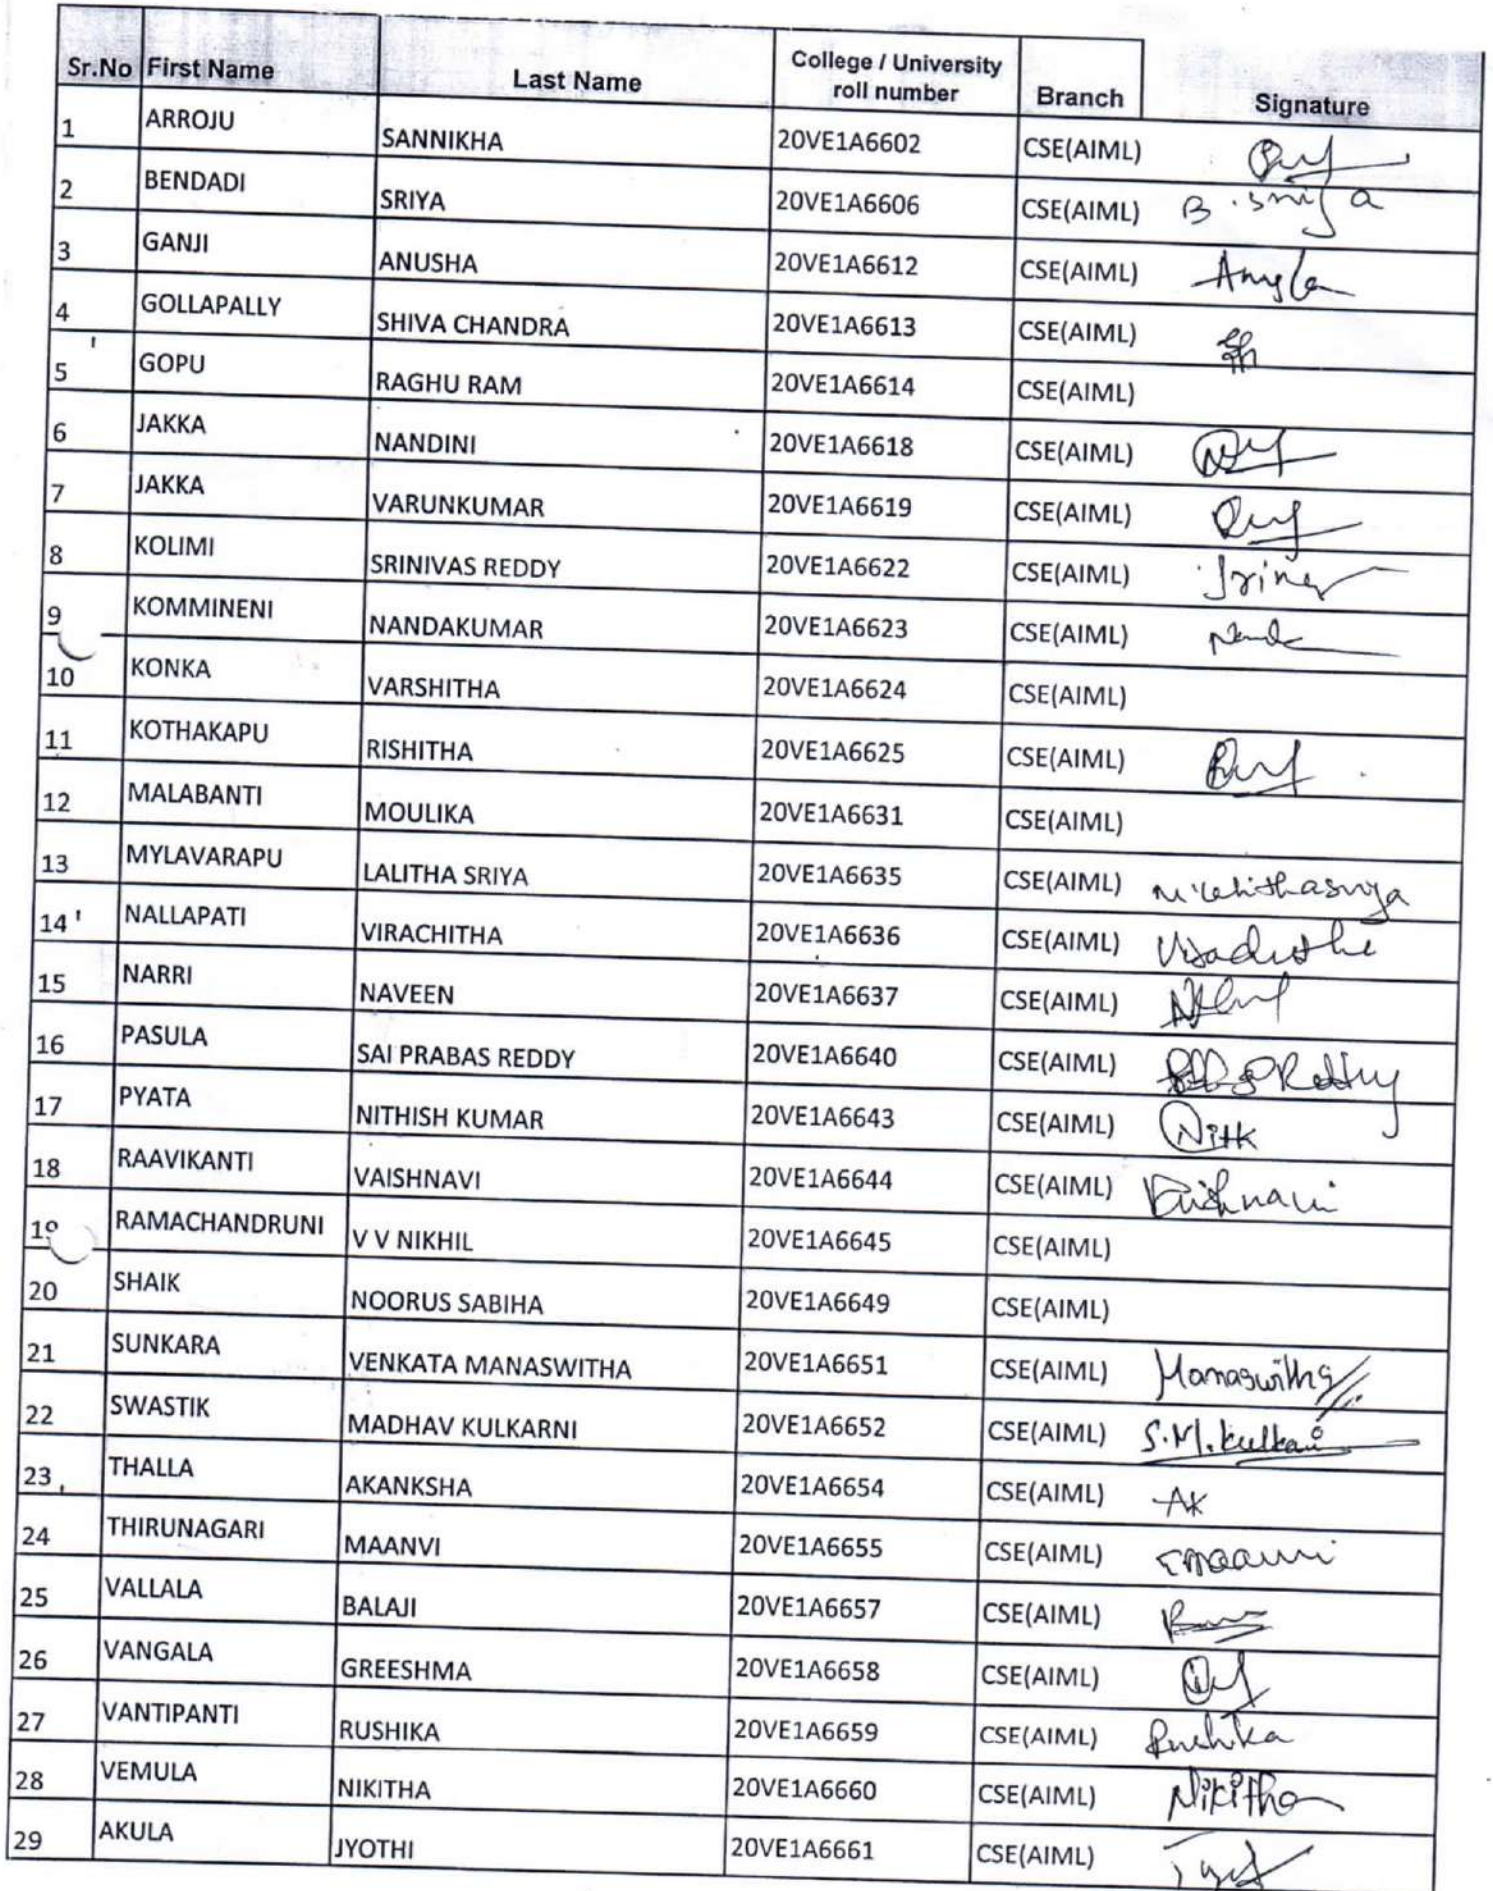 Sr.No First Name Last Name College / University roll number Branch Signature
1 ARROJU SANNIKHA 20VE1A6602 CSE(AIML)
2 BENDADI SRIYA 20VE1A6606 CSE(AIML) B.Sriya
3 GANJI ANUSHA 20VE1A6612 CSE(AIML)
4 GOLLAPALLY SHIVA CHANDRA 20VE1A6613 CSE(AIML)
5 GOPU RAGHU RAM 20VE1A6614 CSE(AIML)
6 JAKKA NANDINI 20VE1A6618 CSE(AIML)
7 JAKKA VARUNKUMAR 20VE1A6619 CSE(AIML)
8 KOLIMI SRINIVAS REDDY 20VE1A6622 CSE(AIML)
9 KOMMINENI NANDAKUMAR 20VE1A6623 CSE(AIML)
10 KONKA VARSHITHA 20VE1A6624 CSE(AIML)
11 KOTHAKAPU RISHITHA 20VE1A6625 CSE(AIML)
12 MALABANTI MOULIKA 20VE1A6631 CSE(AIML)
13 MYLAVARAPU LALITHA SRIYA 20VE1A6635 CSE(AIML)
14 NALLAPATI VIRACHITHA 20VE1A6636 CSE(AIML)
15 NARRI NAVEEN 20VE1A6637 CSE(AIML)
16 PASULA SAI PRABAS REDDY 20VE1A6640 CSE(AIML)
17 PYATA NITHISH KUMAR 20VE1A6643 CSE(AIML)
18 RAAVIKANTI VAISHNAVI 20VE1A6644 CSE(AIML) Vaishnavi
19 RAMACHANDRUNI V V NIKHIL 20VE1A6645 CSE(AIML)
20 SHAIK NOORUS SABIHA 20VE1A6649 CSE(AIML)
21 SUNKARA VENKATA MANASWITHA 20VE1A6651 CSE(AIML) Manaswitha
22 SWASTIK MADHAV KULKARNI 20VE1A6652 CSE(AIML) S.M.Kulkarni
23 THALLA AKANKSHA 20VE1A6654 CSE(AIML) AK
24 THIRUNAGARI MAANVI 20VE1A6655 CSE(AIML)
25 VALLALA BALAJI 20VE1A6657 CSE(AIML)
26 VANGALA GREESHMA 20VE1A6658 CSE(AIML)
27 VANTIPANTI RUSHIKA 20VE1A6659 CSE(AIML) Rushika
28 VEMULA NIKITHA 20VE1A6660 CSE(AIML) Nikitha
29 AKULA JYOTHI 20VE1A6661 CSE(AIML)